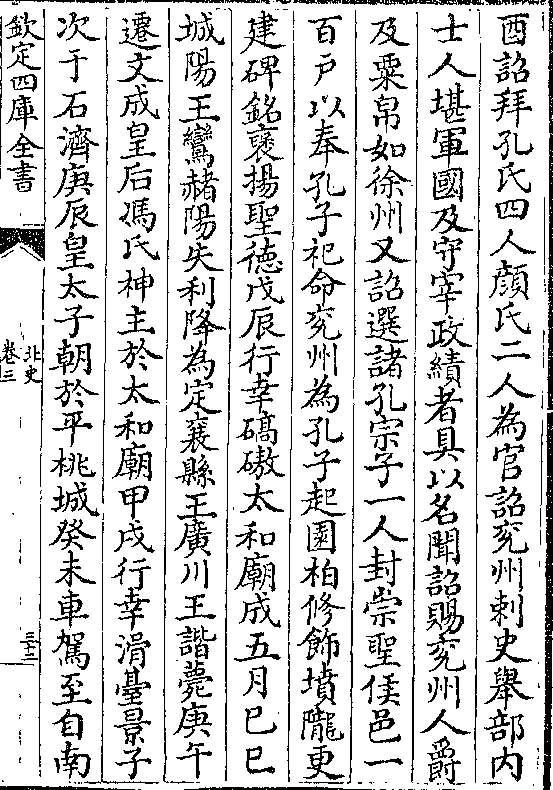 酉詔拜孔氏四人顔氏二人為官詔兖州刺史舉部内
士人堪軍國及守宰政績者具以名聞詔賜兖州人爵
及粟帛如徐州又詔選諸孔宗子一人封崇聖侯邑一
百戸以奉孔子祀命兖州為孔子起園柏修飾墳隴更
建碑銘褒揚聖徳戊辰行幸碻磝太和廟成五月己巳
城陽王鸞赭陽失利降為定襄縣王廣川王諧薨庚午
遷文成皇后馮氏神主於太和廟甲戌行幸滑臺景子
次于石濟庚辰皇太子朝於平桃城癸未車駕至自南
欽定四庫全書
北史
卷三
三十三